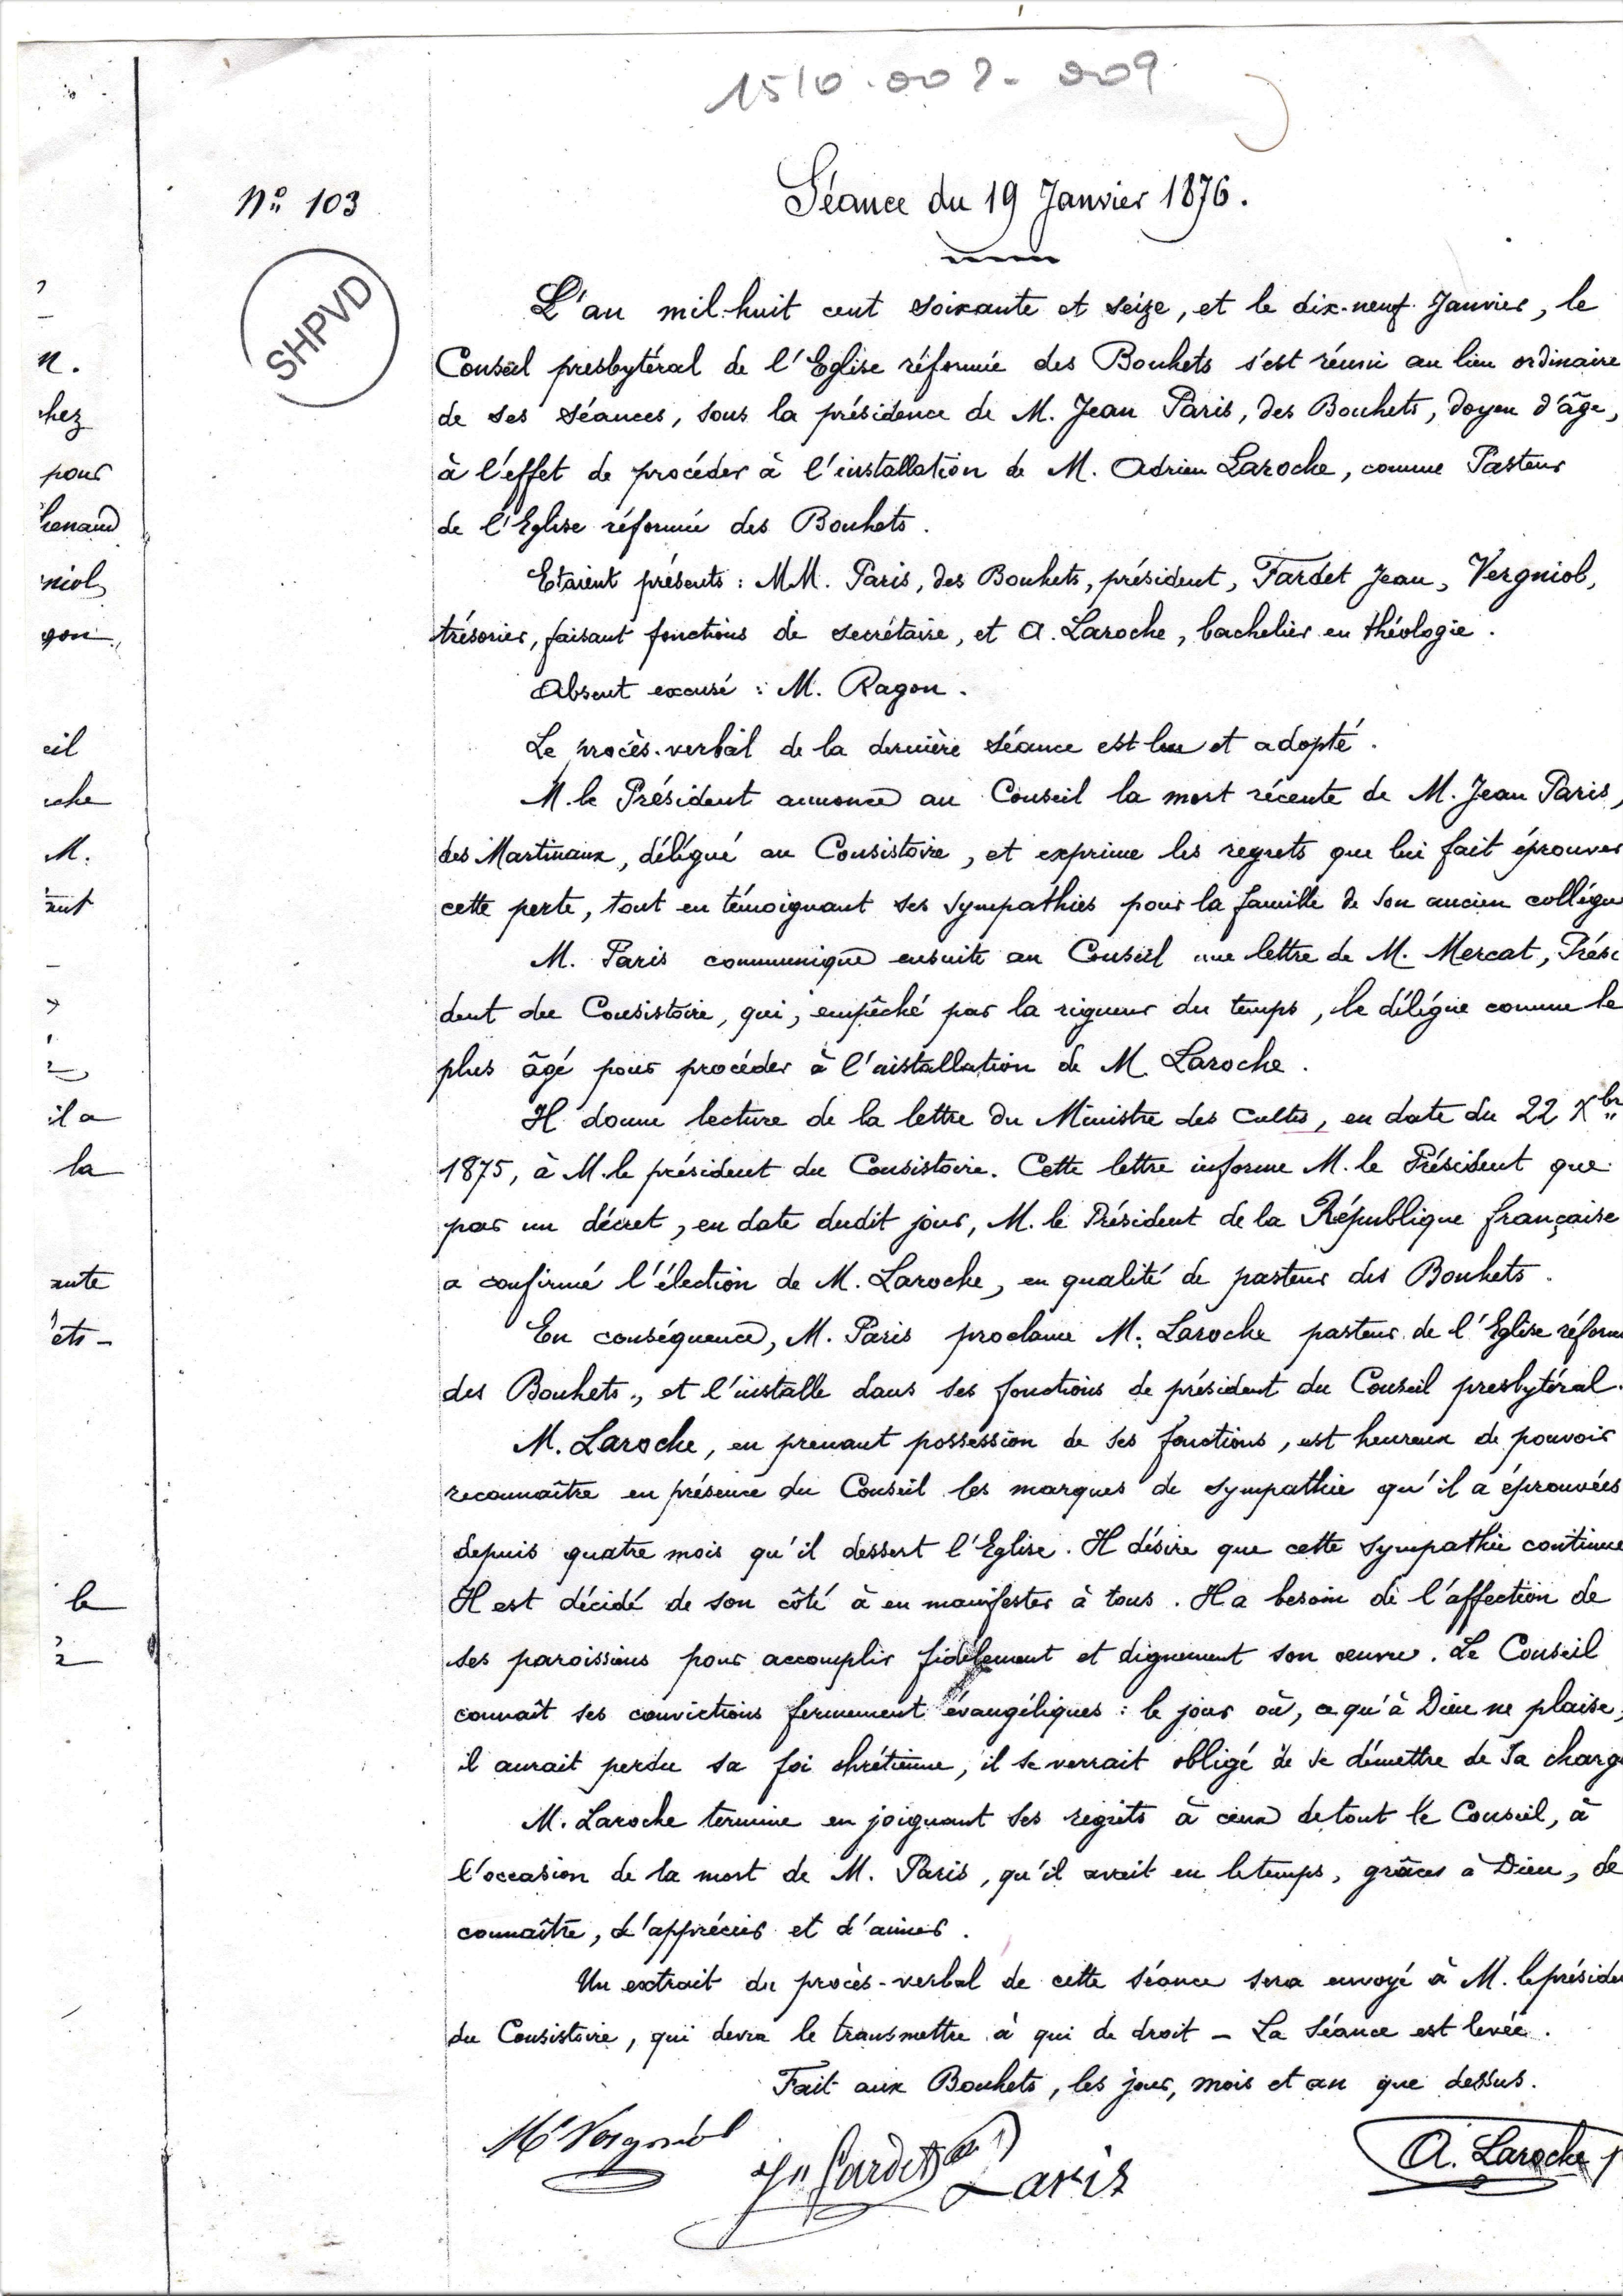 1510.002-009
Séance du 19 Janvier 1876.
Nº 103
SHPVD
L'an mil-huit cent soixante et seize, et le dix-neuf Janvier, le
Conseil presbytéral de l'Eglise réformée des Bouhets s'est réuni au lieu ordinaire
de ses séances, sous la présidence de M. Jean Paris, des Bouhets, doyen d'âge,
à l'effet de procéder à l'installation de M. Adrien Laroche, comme Pasteur
de l'Eglise réformée des Bouhets.
Etaient présents : MM. Paris, des Bouhets, président, Fardet Jean, Vergniol,
trésorier, faisant fonctions de secrétaire, et A. Laroche, bachelier en théologie.
Absent excusé : M. Ragon.
Le procès-verbal de la dernière séance est lu et adopté.
M. le Président annonce au Conseil la mort récente de M. Jean Paris,
des Martinaux, délégué au Consistoire, et exprime les regrets que lui fait éprouver
cette perte, tout en témoignant ses sympathies pour la famille de son ancien collègue
M. Paris communique ensuite au Conseil une lettre de M. Mercat, Prési
dent du Consistoire, qui, empêché par la rigueur du temps, le délégue comme le
plus âgé pour procéder à l'installation de M. Laroche.
Il donne lecture de la lettre du Ministre des Cultes, en date du 22 Xbr
1875, à M. le président du Consistoire. Cette lettre informe M. le Président que
par un décret, en date dudit jour, M. le Président de la République française
a confirmé l'élection de M. Laroche, en qualité de pasteur des Bouhets.
En conséquence, M. Paris proclame M. Laroche pasteur de l'Eglise réform
des Bouhets, et l'installe dans ses fonctions de président du Conseil presbytéral.
M. Laroche, en prenant possession de ses fonctions, est heureux de pouvoir
reconnaître en présence du Conseil les marques de sympathie qu'il a éprouvées
depuis quatre mois qu'il dessert l'Eglise. Il désire que cette sympathie continue
Il est décidé de son côté à en manifester à tous. Il a besoin de l'affection de
ses paroissiens pour accomplir fidèlement et dignement son œuvre. Le Conseil
connaît ses convictions fermement évangéliques : le jour où, ce qu'à Dieu ne plaise,
il aurait perdu sa foi chrétienne, il se verrait obligé de se démettre de sa charge
M. Laroche termine en joignant ses regrets à ceux de tout le Conseil, à
l'occasion de la mort de M. Paris, qu'il avait eu le temps, grâces à Dieu, de
connaître, d'apprécier et d'aimer.
Un extrait du procès-verbal de cette séance sera envoyé à M. le préside
du Consistoire, qui devra le transmettre à qui de droit - La séance est levée.
Fait aux Bouhets, les jour, mois et an que dessus.
Vergniol
Jn Fardet
Paris
A. Laroche p
hez
pour
niol
gon.
eil
M.
ant
il a
la
ante
ets-
le